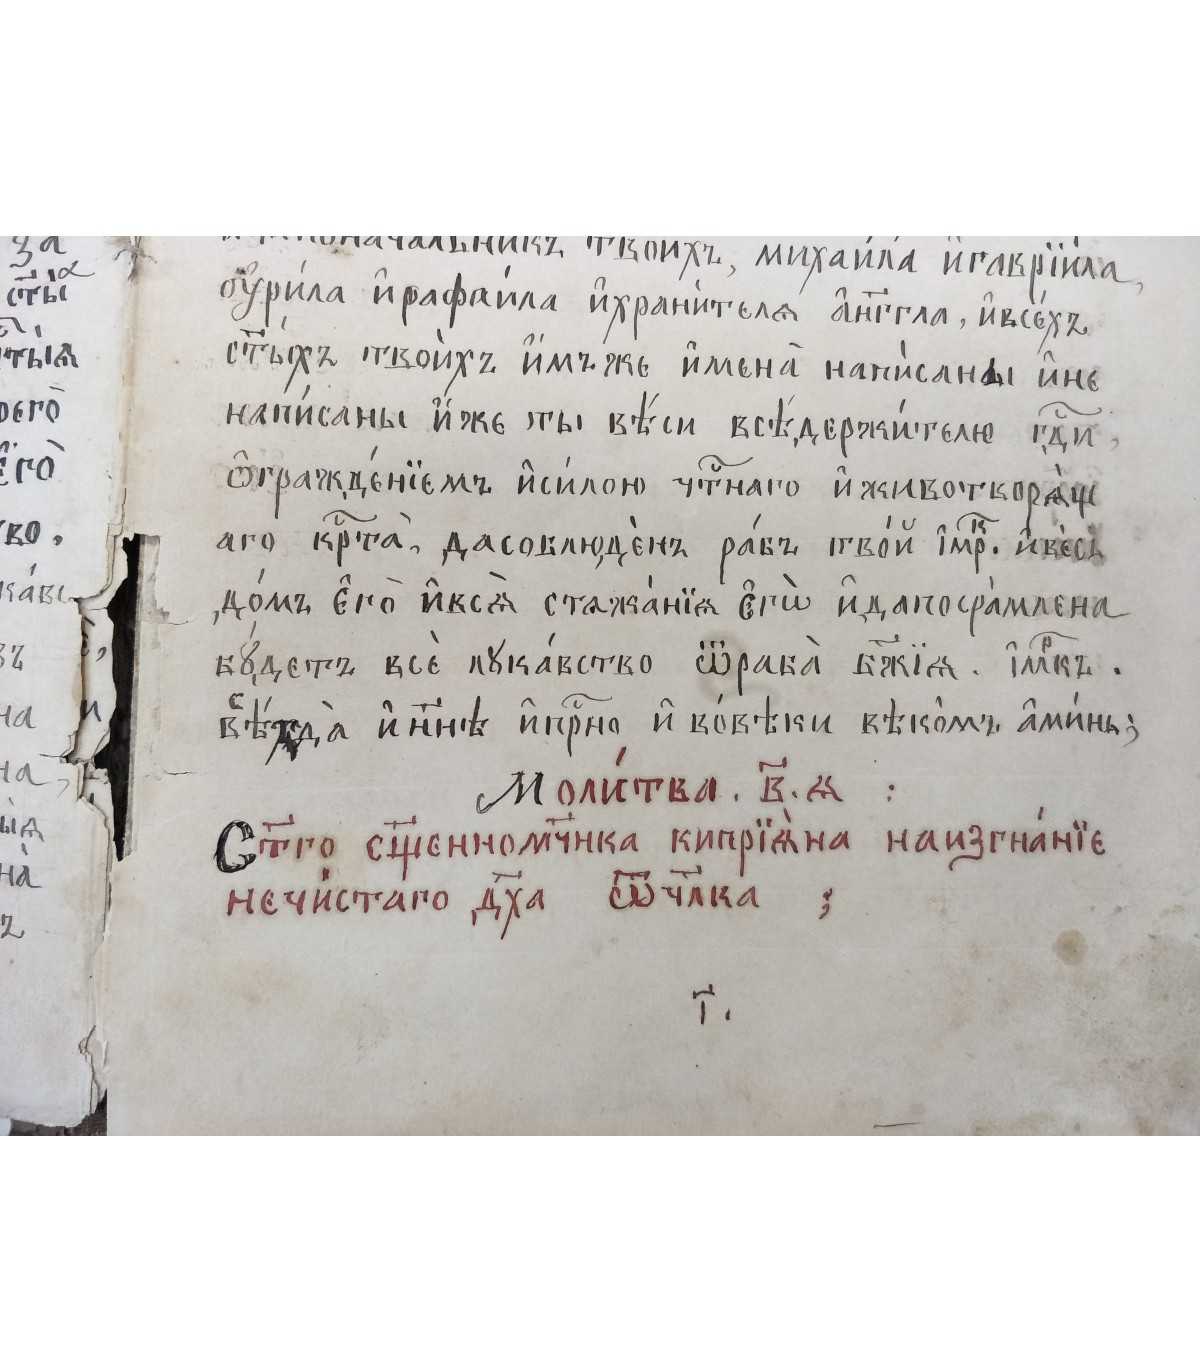 за
ст҃ы́ѧ
тыѧ
оего̀
є҆го̀
во.
ка́вс
на
на,
ыѧ
на̀
твоихъ, михаи́ла и҆гаврїи́ла,
ᲂу҆ри́ла и҆рафаи́ла и҆храни́телѧ а҆нг҃гла, и҆всѣ́хъ
ст҃ы́хъ твои̇́хъ и҆̀мъже и҆мена̀ напи́саны и҆не
напи́саны и҆̀же ты вѣ́си всѣ́держи́телю гдⷭ҇и,
ѡ҆гражде́нїемъ и҆си́лою чтⷭ҇наго и҆животворѧ́щ
аго крⷭ҇та̀, дасоблюде́нъ ра́бъ тво́й і҆мрⷦ҇. и҆ве́сь
до́мъ є҆го̀ и҆всѧ̀ стѧжа́нїѧ є҆гѡ̀ и҆дапосра́млена
бꙋ́детъ всѐ лꙋка́вство ѿраба̀ бж҃їѧ. і҆мⷬ҇къ.
всѣгда̀ и҆нн҃ѣ и҆прⷭ҇но и҆во́вѣки вѣко́мъ а҆ми́нь;
Моли́тва. в҃.ѧ :
Ст҃го сщ҃енномч҃нка кипрїѧ̀на наизгна́нїе
нечи́стаго дх҃а ѿчл҃ка ;
г҃.